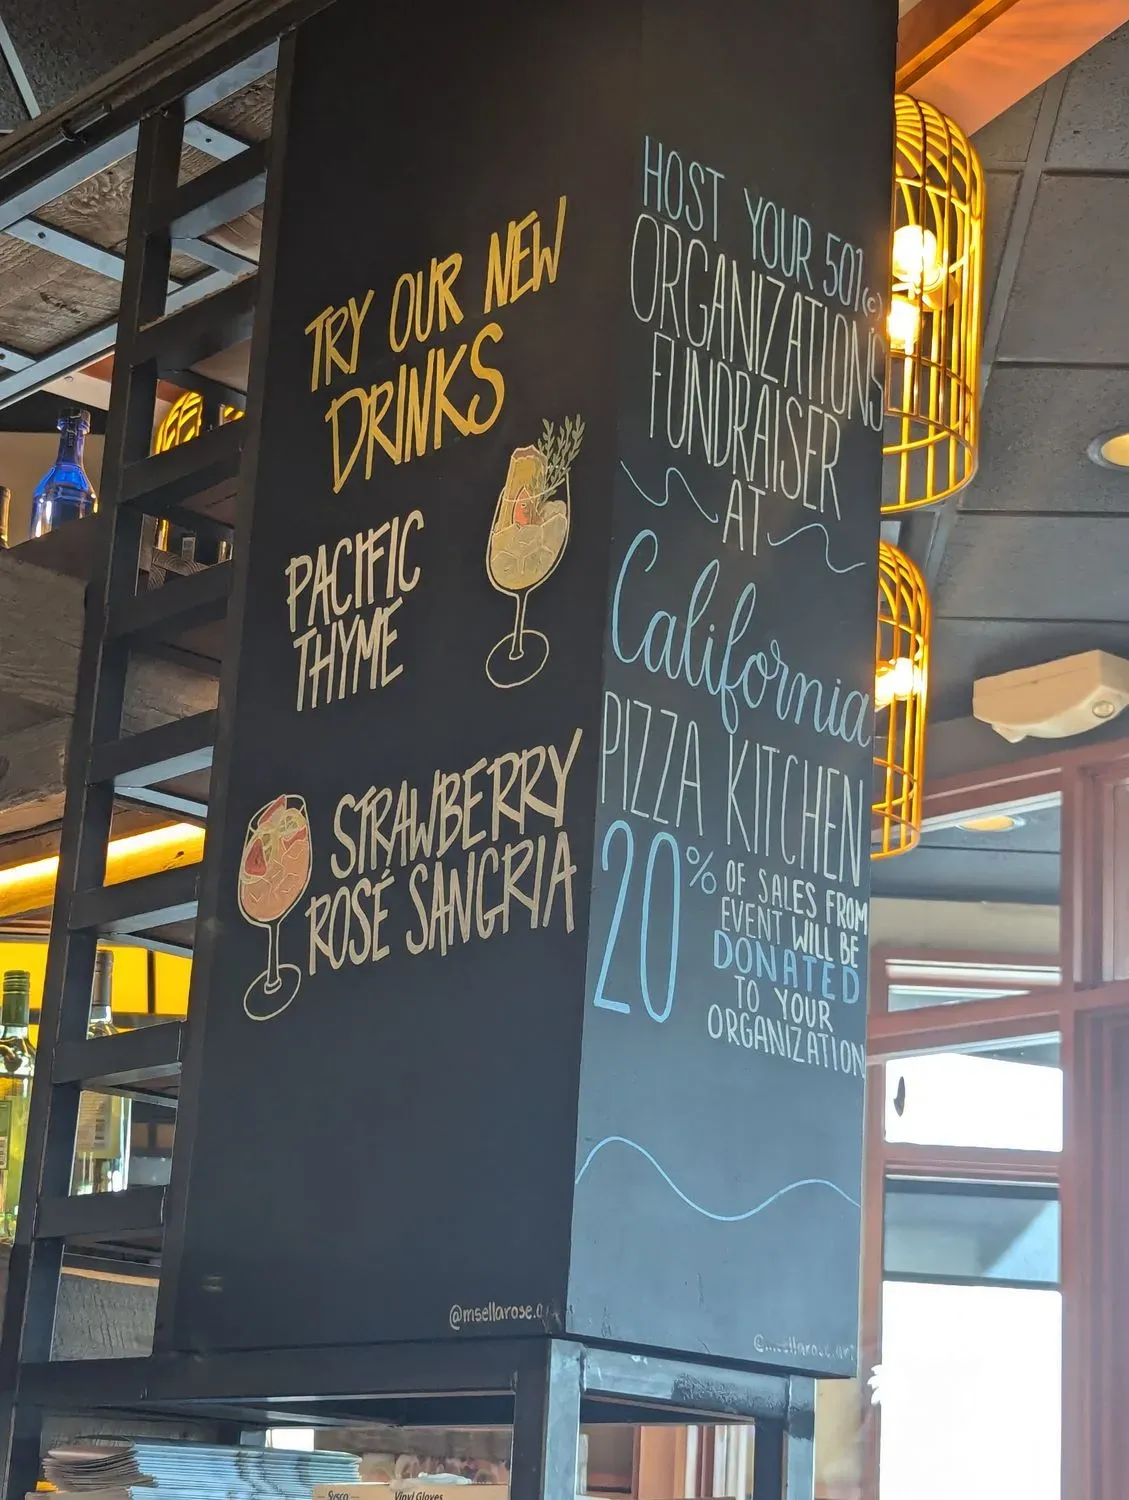 TRY OUR NEW
DRINKS
PACIFIC
THYME
STRAWBERRY
ROSÉ SANGRIA
HOST YOUR 501(c)
ORGANIZATION'S
FUNDRAISER
AT
California
PIZZA KITCHEN
20%
OF SALES FROM
EVENT WILL BE
DONATED
TO YOUR
ORGANIZATION
Sysco
Vinyl Gloves